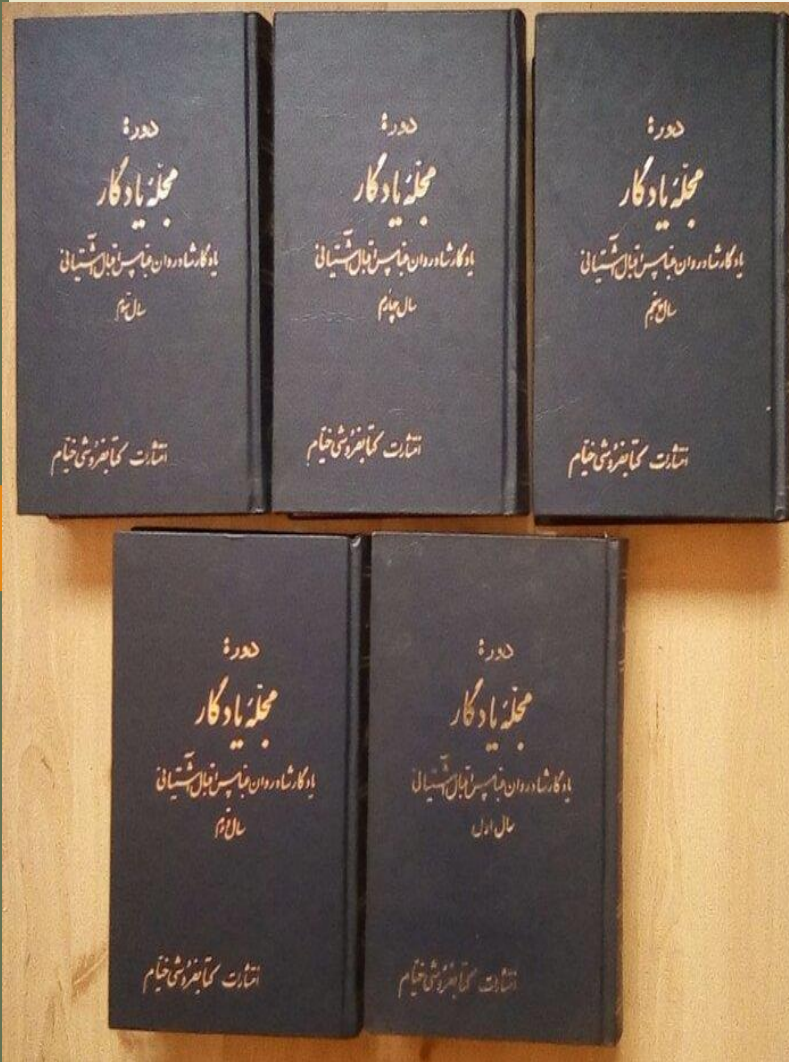 دورهٔ
مجلّهٔ یادگار
یادگار شادروان عباس اقبال آشتیانی
سال پنجم
انتشارات کتابفروشی خیام
دورهٔ
مجلّهٔ یادگار
یادگار شادروان عباس اقبال آشتیانی
سال چهارم
انتشارات کتابفروشی خیام
دورهٔ
مجلّهٔ یادگار
یادگار شادروان عباس اقبال آشتیانی
سال سوم
انتشارات کتابفروشی خیام
دورهٔ
مجلّهٔ یادگار
یادگار شادروان عباس اقبال آشتیانی
سال اول
انتشارات کتابفروشی خیام
دورهٔ
مجلّهٔ یادگار
یادگار شادروان عباس اقبال آشتیانی
سال دوم
انتشارات کتابفروشی خیام